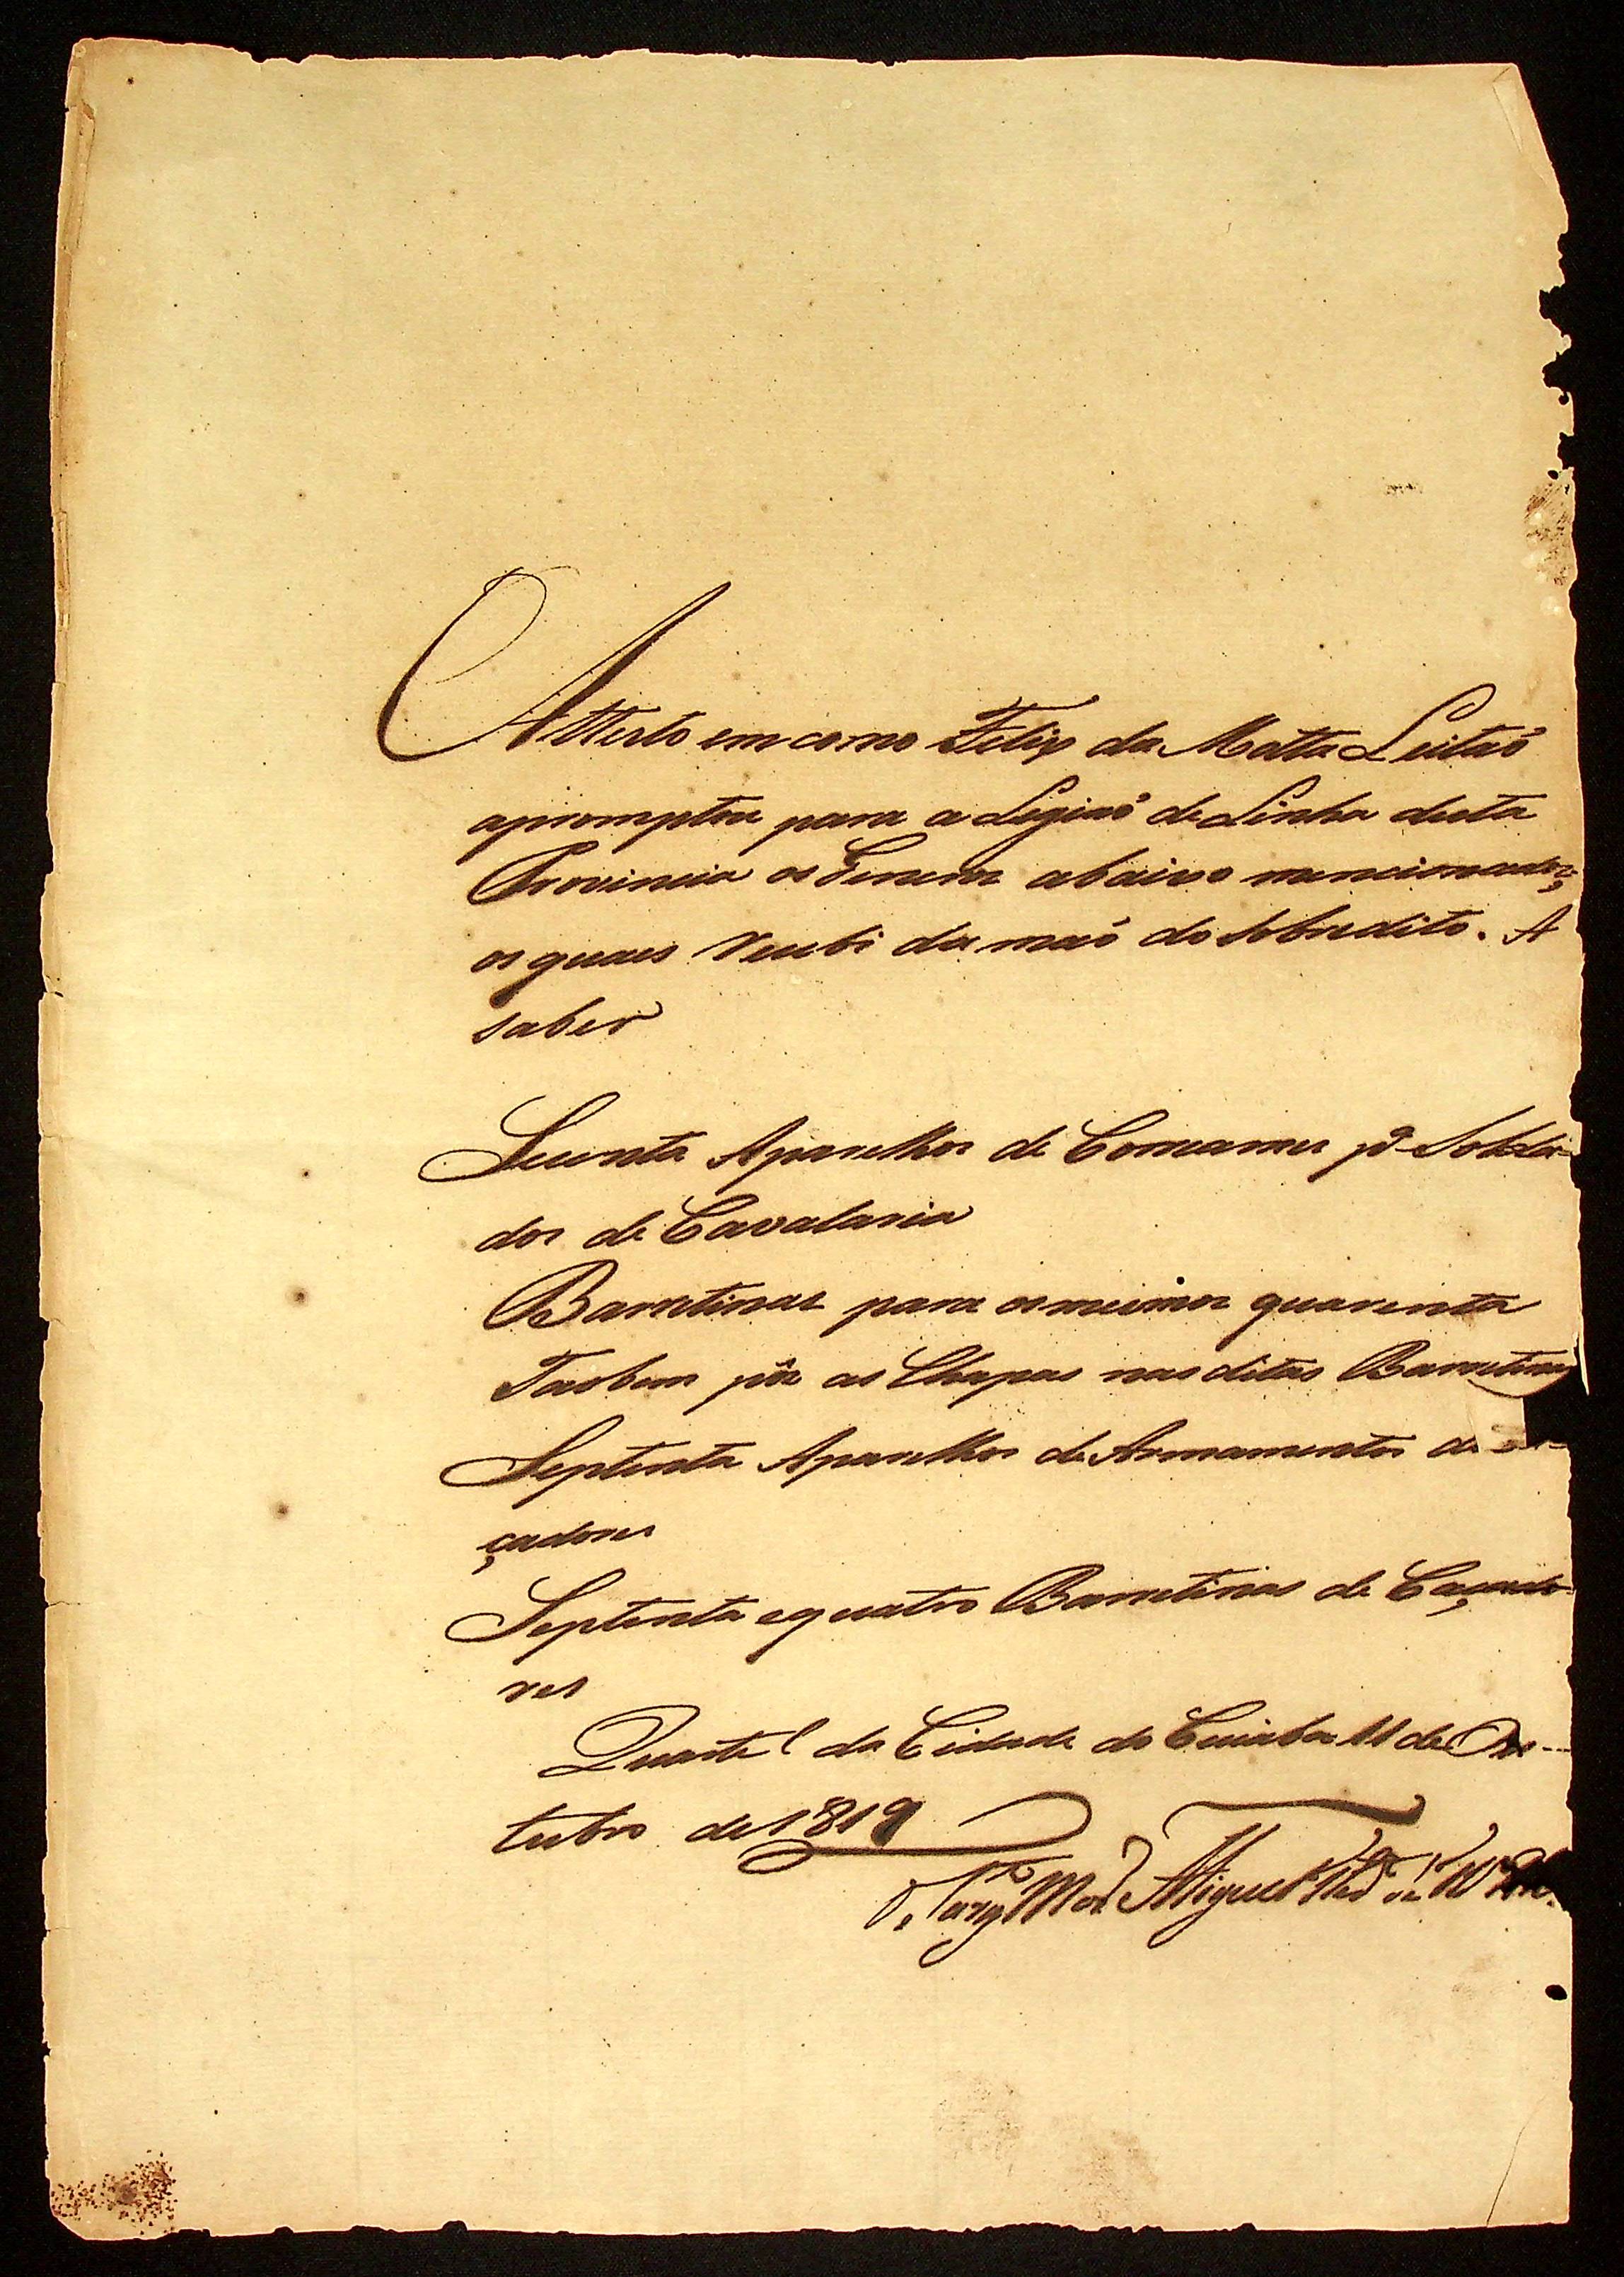 Attesto em como Felix da Matta Leitaõ
apromptou para a Legiaõ de Linha desta
Provincia os Generos abaixo mencionados,
os quaes recebi da maõ do sobredito. A
saber
Secenta Aparelhos de Correames pª Solda-
dos de Cavalaria
Barretinas para os mesmos quarenta
Taobem pôz as Chapas nas ditas Barretinas
Septenta Aparelhos de Armamentos de
çadores
Septenta e quatro Barretinas de Caçado-
res
Quartel da Cidade do Cuiaba 11 de Ou-
tubro de 1819
Sargto Mor Miguel